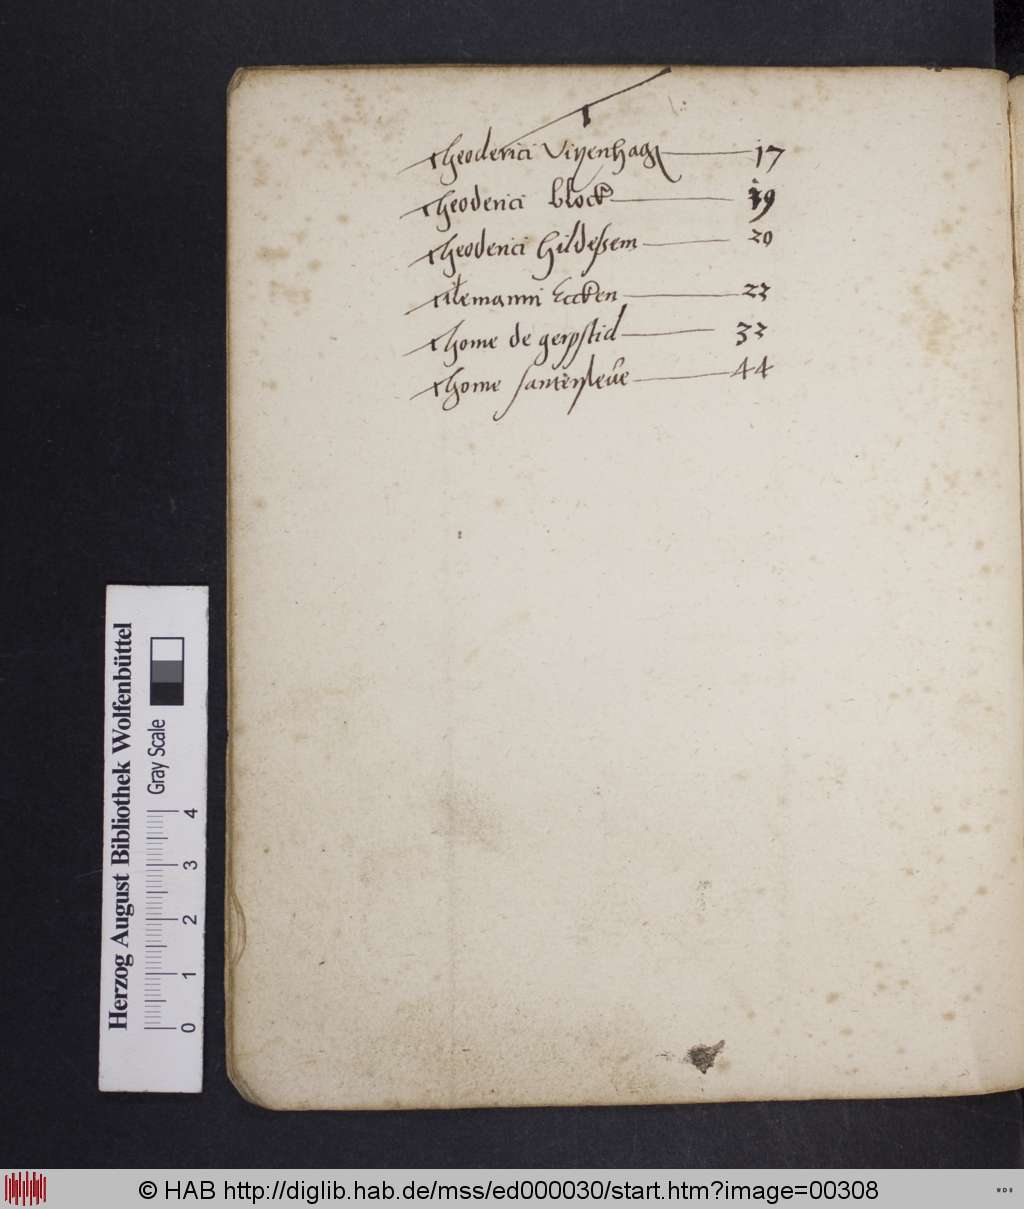 T
theoderici Vitzenhag 17
theoderici block 19
theoderici hildessem 20
tilemanni Eccken 23
thome de gerpstid 33
thome santersleve 44
Herzog August Bibliothek Wolfenbüttel
Gray Scale
0 1 2 3 4
© HAB http://diglib.hab.de/mss/ed000030/start.htm?image=00308